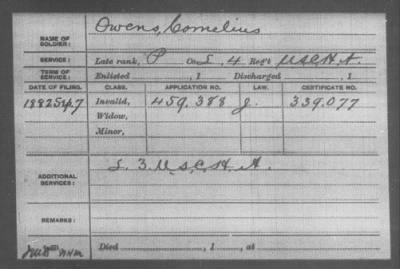 Owens, Cornelius
NAME OF SOLDIER:
SERVICE: Late rank, P Co. L, 4 Reg't U.S.C.H.A.
TERM OF SERVICE: Enlisted , 1 Discharged , 1
DATE OF FILING. CLASS. APPLICATION NO. LAW. CERTIFICATE NO.
1882 Sep 7 Invalid, 459,388 J. 339.077
Widow,
Minor,
ADDITIONAL SERVICES: L. 3. U.S.C.H.A.
REMARKS:
Died , 1 , at